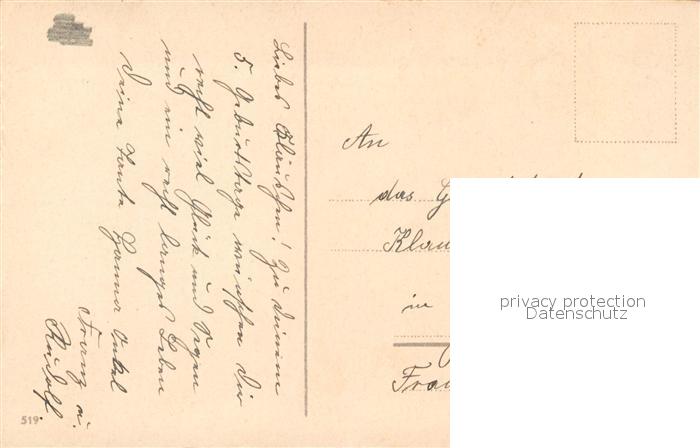 Liebes Kläuschen! Zu deinem
5. Geburtstage wünschen dir
recht viel Glück und Segen
und ein recht langes Leben
deine Tante Hanna Onkel
Franz u.
Rudolf.
519
An
das G
Klau
in
Fra
privacy protection
Datenschutz